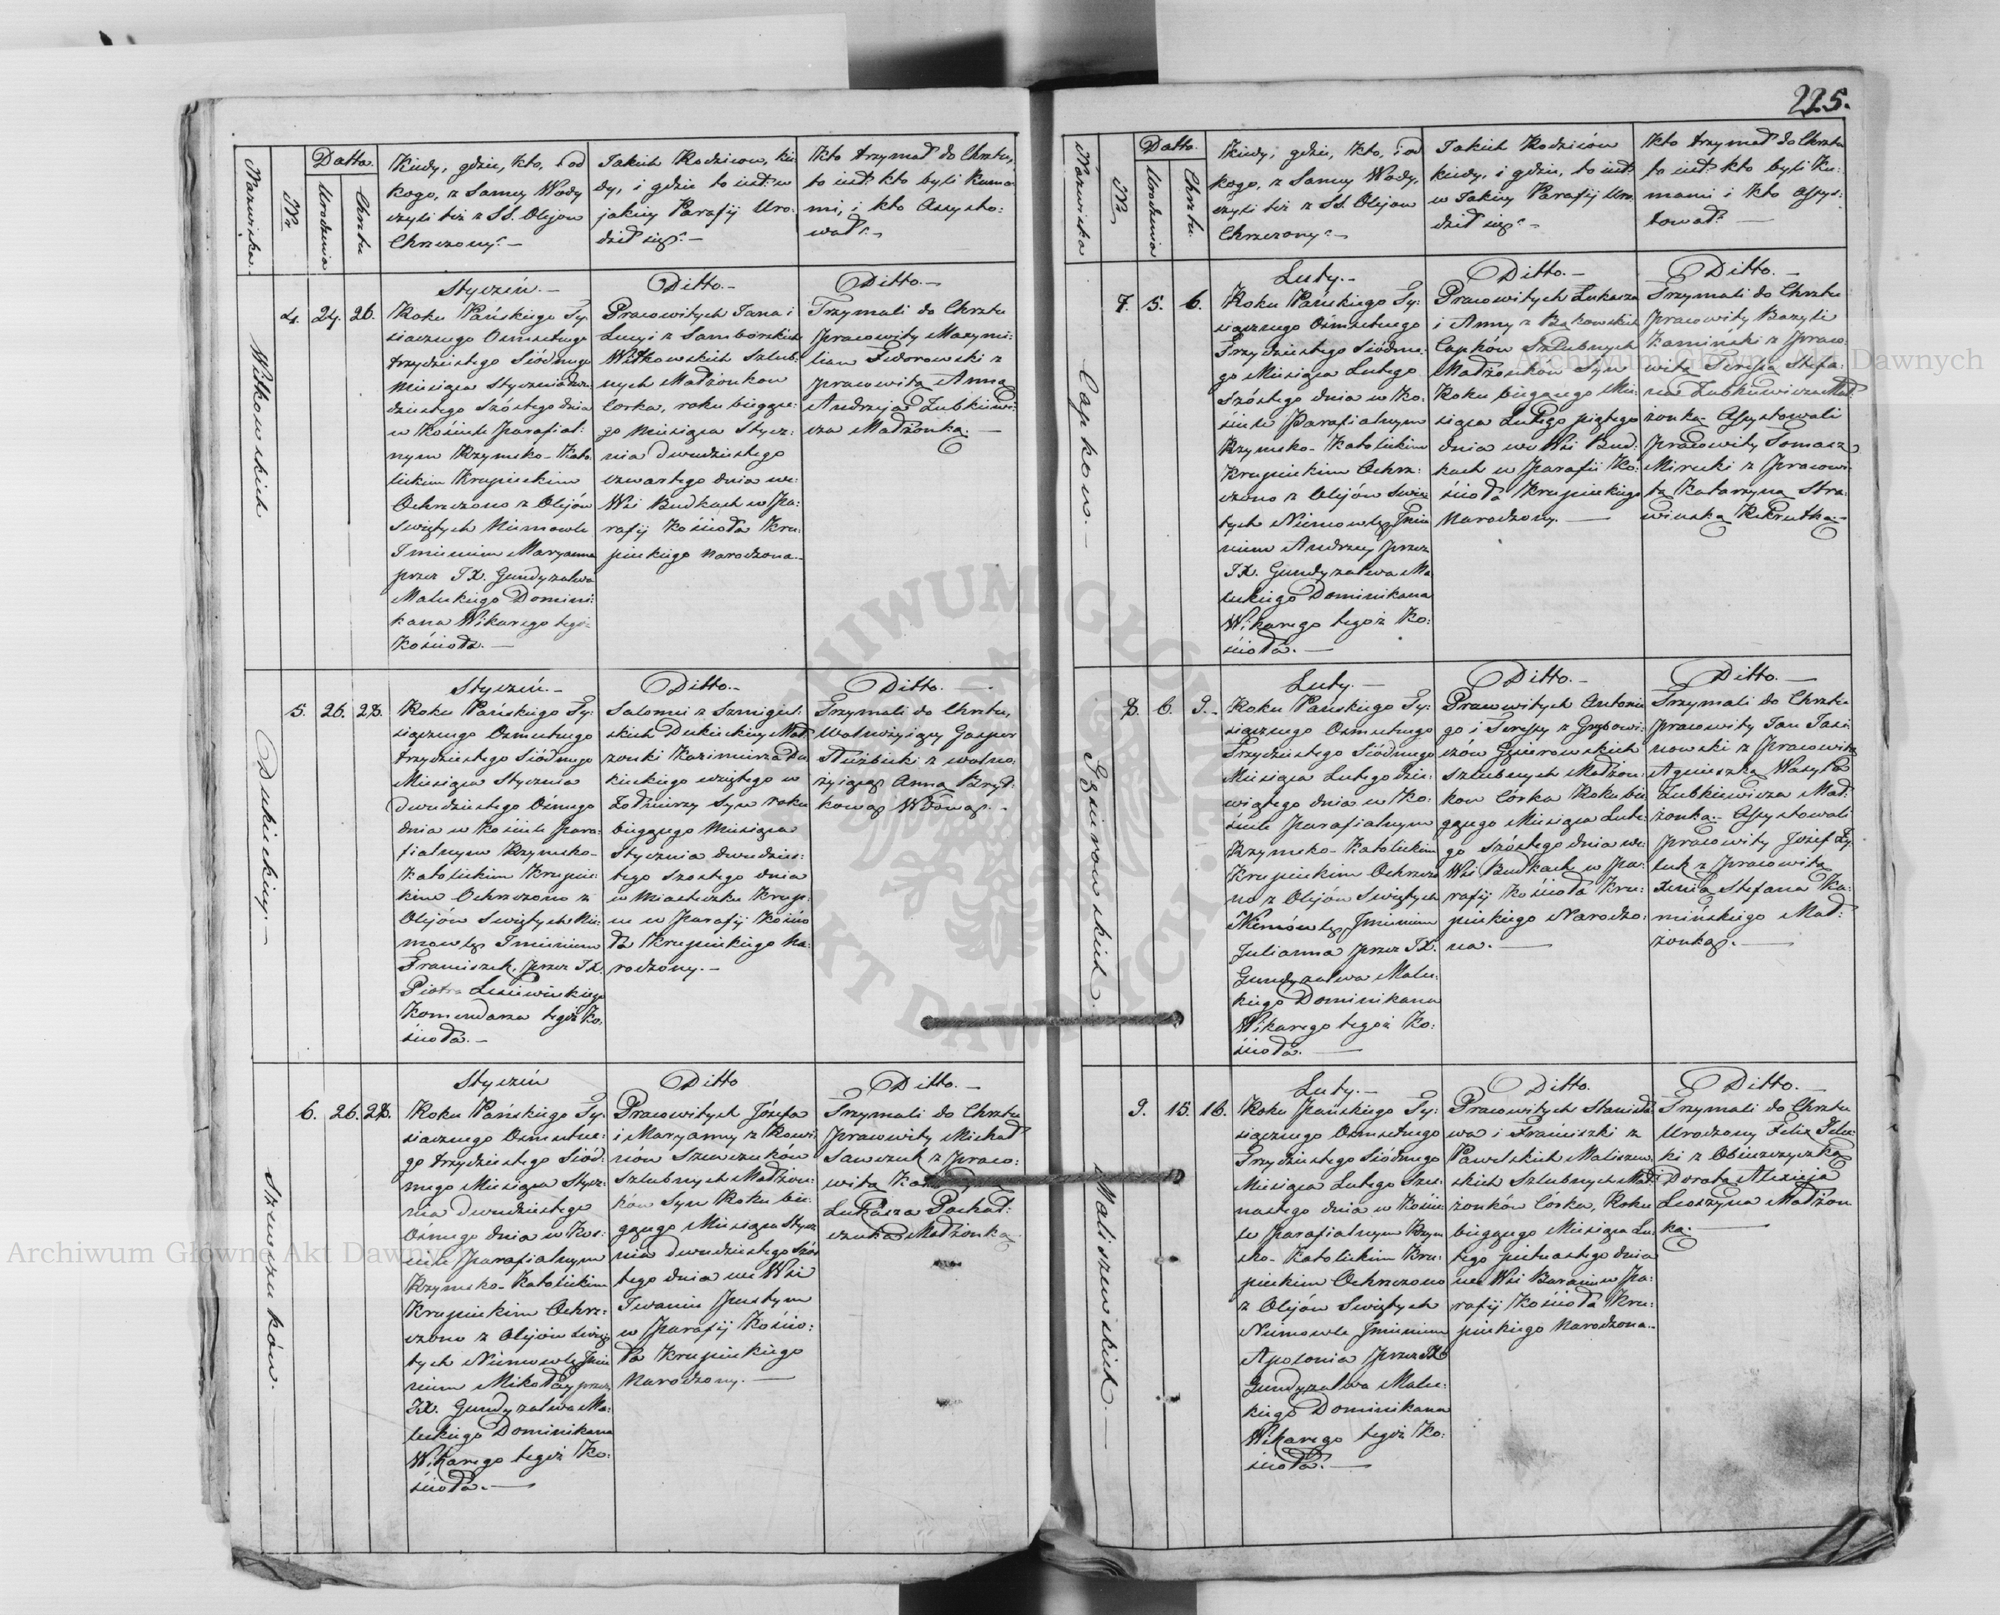 225.
Nazwiska.
Nr
Datto.
Urodzenia
Chrztu
Kiedy, gdzie, kto, i od
kogo, z Samey Wody
czyli też z SS. Olejow
Chrzczony? —
Jakich Rodzicow, kie
dy, i gdzie to iest w
jakiey Parafij Uro:
dził się? —
Kto trzymał do Chrztu,
to iest kto byli Kumo:
mi, i kto Assysto:
wał? —
Witkowskich
4. 24. 26.
Styczeń. —
Roku Pańskiego Ty:
siącznego Osmsetnego
trzydziestego Siódmego
Miesiąca Stycznia dwu:
dziestego Szóstego dnia
w Kościele Parafial:
nym Rzymsko-Kato:
lickim Krupieckim
Ochrzczono z Olejów
Swiętych Niemowle
Imieniem Maryanna
przez JX. Gundyzalwa
Maleckiego Domini:
kana Wikarego tegoż
Kościoła. —
Ditto. —
Pracowitych Jana i
Lucyi z Samborskich
Witkowskich Szlub:
nych Małżonkow
Corka, roku bieżące:
go Miesiąca Stycz:
nia dwudziestego
czwartego dnia we
Wsi Budkach w Pa:
rafij Kościoła Kru:
pieckiego narodzona. —
Ditto. —
Trzymali do Chrztu
Pracowity Maxymi:
lian Fedorowski z
pracowitą Anną
Andrzeja Zubkiewi:
cza Małżonką. —
Dukieckiey. —
5. 26. 28.
Styczeń. —
Roku Pańskiego Ty:
siącznego Osmsetnego
trzydziestego Siódmego
Miesiąca Stycznia
Dwudziestego Ośmego
dnia w Kościele para:
fialnym Rzymsko-
Katolickim Krupiec:
kim Ochrzczono z
Olejów Swiętych Nie:
mowle Imieniem
Franciszek, przez JX.
Piotra
Komendarza tegoż Ko:
ścioła. —
Ditto. —
Salomei z Szmigiel:
skich Dukieckiey Mał:
żonki Kazimierza Du
kieckiego wziętego w
Żołnierzy Syn roku
bieżącego Miesiąca
Stycznia dwudzies:
tego Szostego dnia
w Miasteczku Krup:
cu w Parafij Kościo
ła Krupieckiego na:
rodzony. —
Ditto. —
Trzymali do Chrztu,
Wolnożyiący Gasper
Służbicki z wolno:
żyiącą Anną
Wdową. —
Szewczuków. —
6. 26. 28.
Styczeń
Roku Pańskiego Ty:
siącznego Osmsetne:
go trzydziestego Siód:
mego Miesiąca Stycz:
nia dwudziestego
Ośmego dnia w Koś:
ciele Parafialnym
Rzymsko-Katolickim
Krupieckim Ochrz:
czono z Olejów Swię
tych Niemowle Imie
niem Mikołay przez
JX. Gundyzalwa Ma:
leckiego Dominikana
Wikarego tegoż Ko:
ścioła. —
Ditto
Pracowitych Józefa
i Maryanny z
Szewczuków
Szlubnych Małżon:
ków Syn Roku bie:
żącego Miesiąca Stycz
nia dwudziestego Szós
tego dnia we Wsi
Iwaniu Pustym
w Parafij Kościo:
ła Krupieckiego
narodzony. —
Ditto. —
Trzymali do Chrztu
Pracowity Michał
Sawczuk z praco:
witą
Łukasza Pochał:
czuka Małżonką
Nazwiska
Nr
Datto.
Urodzenia
Chrztu.
Kiedy, gdzie, kto, i od
kogo, z Samey Wody,
czyli też z SS. Olejow
Chrzczony? —
Jakich Rodziców
kiedy, i gdzie, to iest
w Jakiey Parafij Uro
dził się? —
Kto trzymał do Chrztu
to iest kto byli Ku:
mami i kto Assys:
tował? —
Capkow. —
7. 5. 6.
Luty. —
Roku Pańskiego Ty:
siącznego Osmsetnego
Trzydziestego Siódme:
go Miesiąca Lutego
Szóstego dnia w Ko:
ściele Parafialnym
Rzymsko-Katolickim
Krupieckim Ochrz:
czono z Olejów Swię
tych Niemowle Imie
niem Andrzey przez
JX. Gundyzalwa Ma
leckiego Dominikana
Wikarego tegoż Ko:
ścioła. —
Ditto. —
Pracowitych Łukasza
i Anny z Bąkowskich
Capków Szlubnych
Małżonków Syn
Roku bieżącego Mie:
siąca Lutego piątego
dnia we Wsi Bud:
kach w Parafij Ko:
ścioła Krupieckiego
narodzony. —
Ditto. —
Trzymali do Chrztu
Pracowity Bazyli
Kamiński z Praco:
witą Teresą Stefa:
na Zubkiewicza Mał:
żonką. Assystowali
Pracowity Tomasz
Mirecki z Pracowi:
tą Katarzyną Stra:
Rekrutką. —
Gąsierowskich.
8. 6. 9.
Luty. —
Roku Pańskiego Ty:
siącznego Osmsetnego
Trzydziestego Siódmego
Miesiąca Lutego Dzie:
wiątego dnia w Ko:
ściele Parafialnym
Rzymsko-Katolickim
Krupieckim Ochrzczo
no z Olejów Swiętych
Niemowle Imieniem
Julianna przez JX.
Gundyzalwa Malec:
kiego Dominikana
Wikarego tegoż Ko:
ścioła. —
Ditto. —
Pracowitych Antonie
go i Teressy z Grzybowi:
czów Gąsierowskich
Szlubnych Małżon:
kow Córka Roku bie
żącego Miesiąca Lute:
go Szóstego dnia we
Wsi Budkach w Pa:
rafij Kościoła Kru:
pieckiego Narodzo:
na. —
Ditto. —
Trzymali do Chrztu
Pracowity Jan Jasi:
nowski z Pracowitą
Agnieszką Wasyla
Zubkiewicza Mał:
żonką. Assystowali
Pracowity Józef
z Pracowitą
Stefana Ka:
mińskiego Mał:
żonką. —
Maliszewskich. —
9. 15. 16.
Luty. —
Roku Pańskiego Ty:
siącznego Osmsetnego
Trzydziestego Siódmego
Miesiąca Lutego Szes:
nastego dnia w Kości
le Parafialnym Rzym
sko-Katolickim Kru:
pieckim Ochrzczono
z Olejów Swiętych
Niemowle Imieniem
Apolonia przez JX
Gundyzalwa Malec:
kiego Dominikana
Wikarego tegoż Ko:
ścioła. —
Ditto.
Pracowitych Stanisła
wa i Franciszki z
Pawelskich Maliszew:
skich Szlubnych Mał:
żonków Córka, Roku
bieżącego Miesiąca Lu:
tego pietnastego dnia
we Wsi Baraniu w Pa:
rafij Kościoła Kru:
pieckiego narodzona. —
Ditto. —
Trzymali do Chrztu
Urodzony Felix
ki z Obieszczyczką
Dorotą Alexieja
Leoszyna Małżon
ką. —
Archiwum Główne Akt Dawnych
Archiwum Główne Akt Dawnych
ARCHIWUM GŁÓWNE AKT DAWNYCH